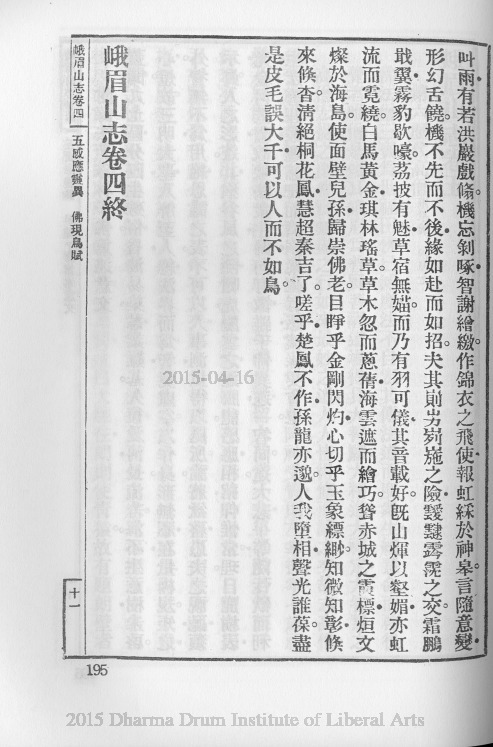 叫雨有若洪巖戲翛機忘剝啄智謝繒繳作錦衣之飛使報虹綵於神皋言隨意變
形幻舌饒機不先而不後緣如赴而如招夫其則岃崱崺之險靉靆霮䨴之交霜鵬
戢翼霧豹歇嚎荔披有魅草宿無媌而乃有羽可儀其音載好旣山煇以壑媚亦虹
流而霓繞白馬黃金琪林瑤草草木忽而蔥蒨海雲遮而繪巧聳赤城之霞標烜文
燦於海島使面壁兒孫歸崇佛老目睜乎金剛閃灼心切乎玉象縹緲知微知彰倏
來倏杳清絕桐花鳳慧超秦吉了嗟乎楚鳳不作孫龍亦邈人我墮相聲光誰葆盡
是皮毛誤大千可以人而不如鳥
峨眉山志卷四終
峨眉山志卷四 五感應靈異 佛現鳥賦
十一
195
2015-04-16
2015 Dharma Drum Institute of Liberal Arts